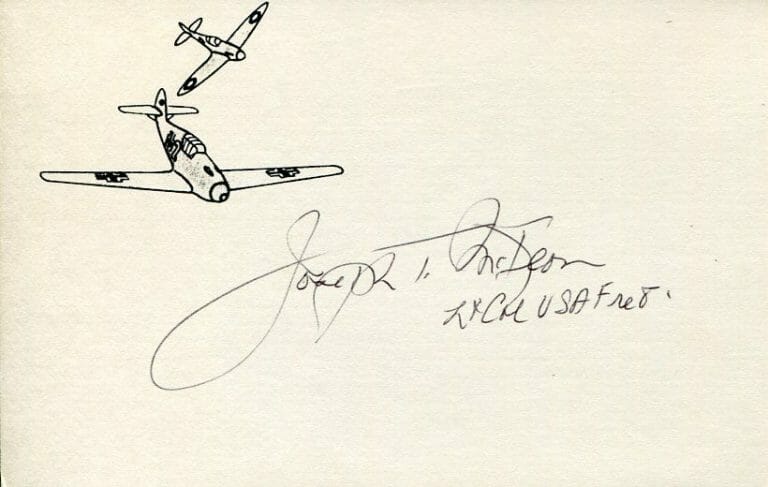 Joseph T. McKeon
Lt Col USAF ret.